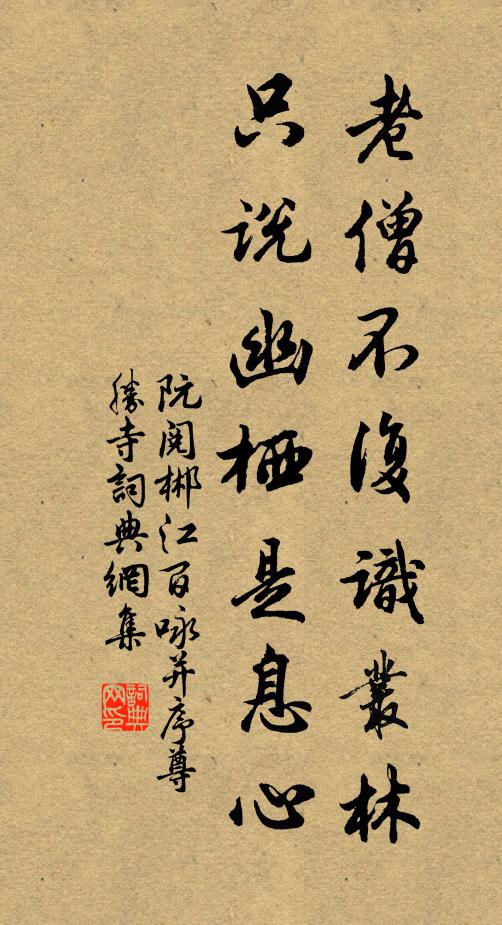 老僧不復識叢林
只說幽栖是息心
阮閱郴江百咏并序尊
勝寺詞典網集
詞典网印